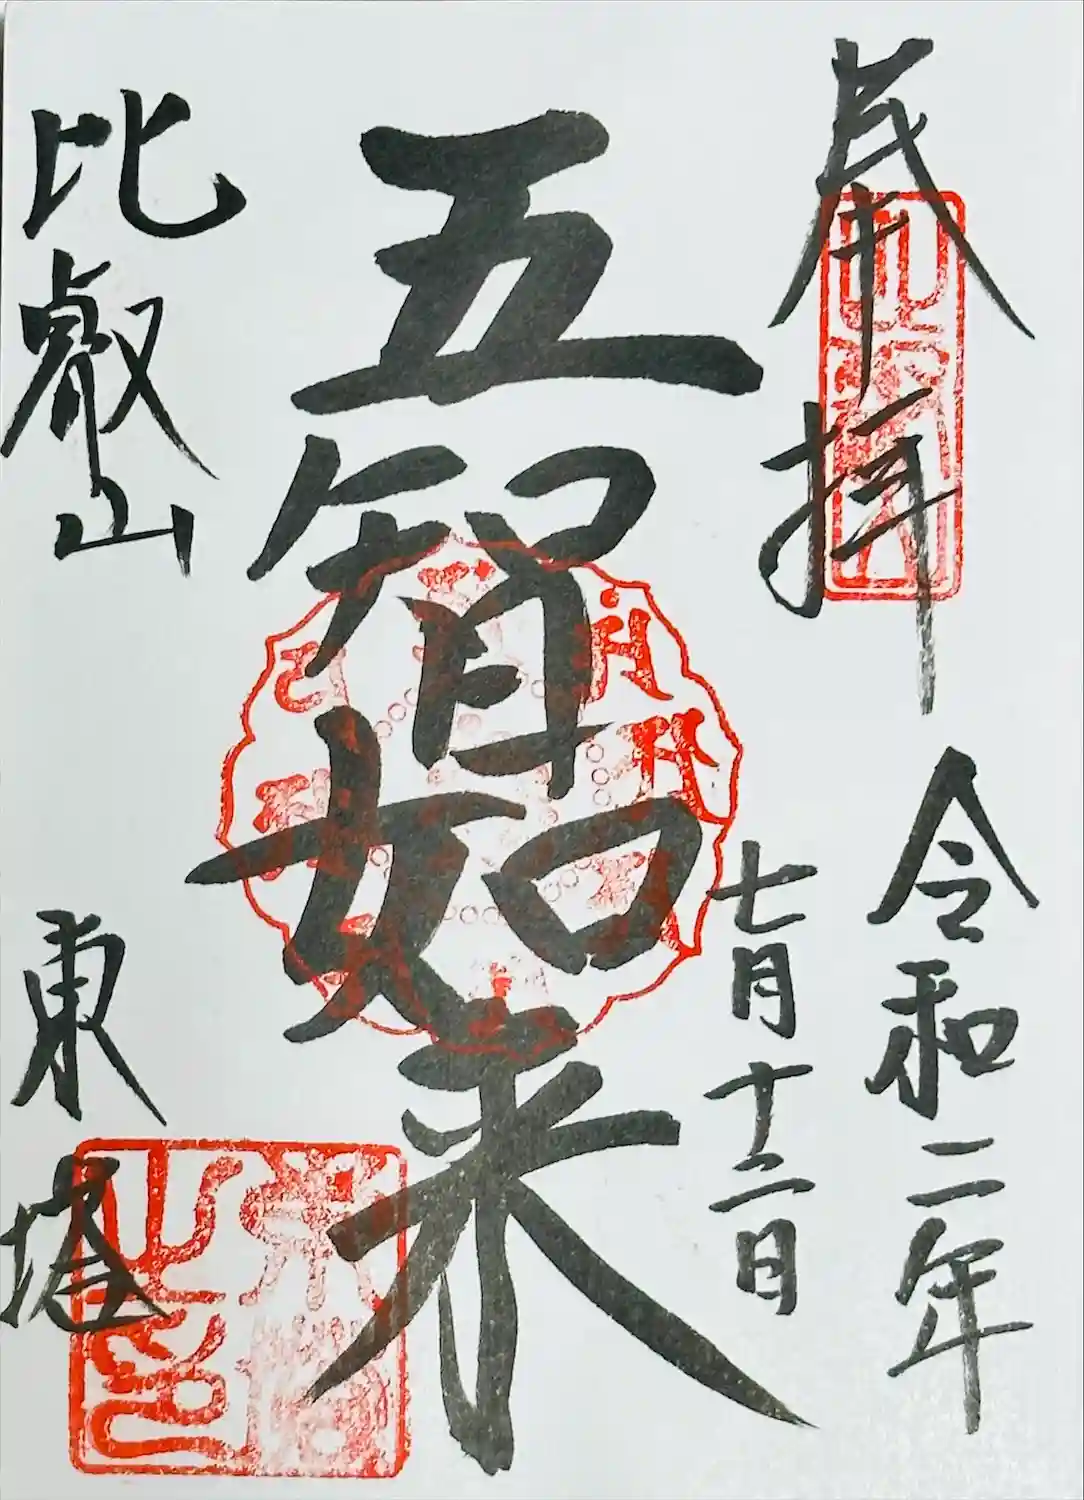 奉拝
令和二年
七月十二日
五智如来
比叡山
東塔